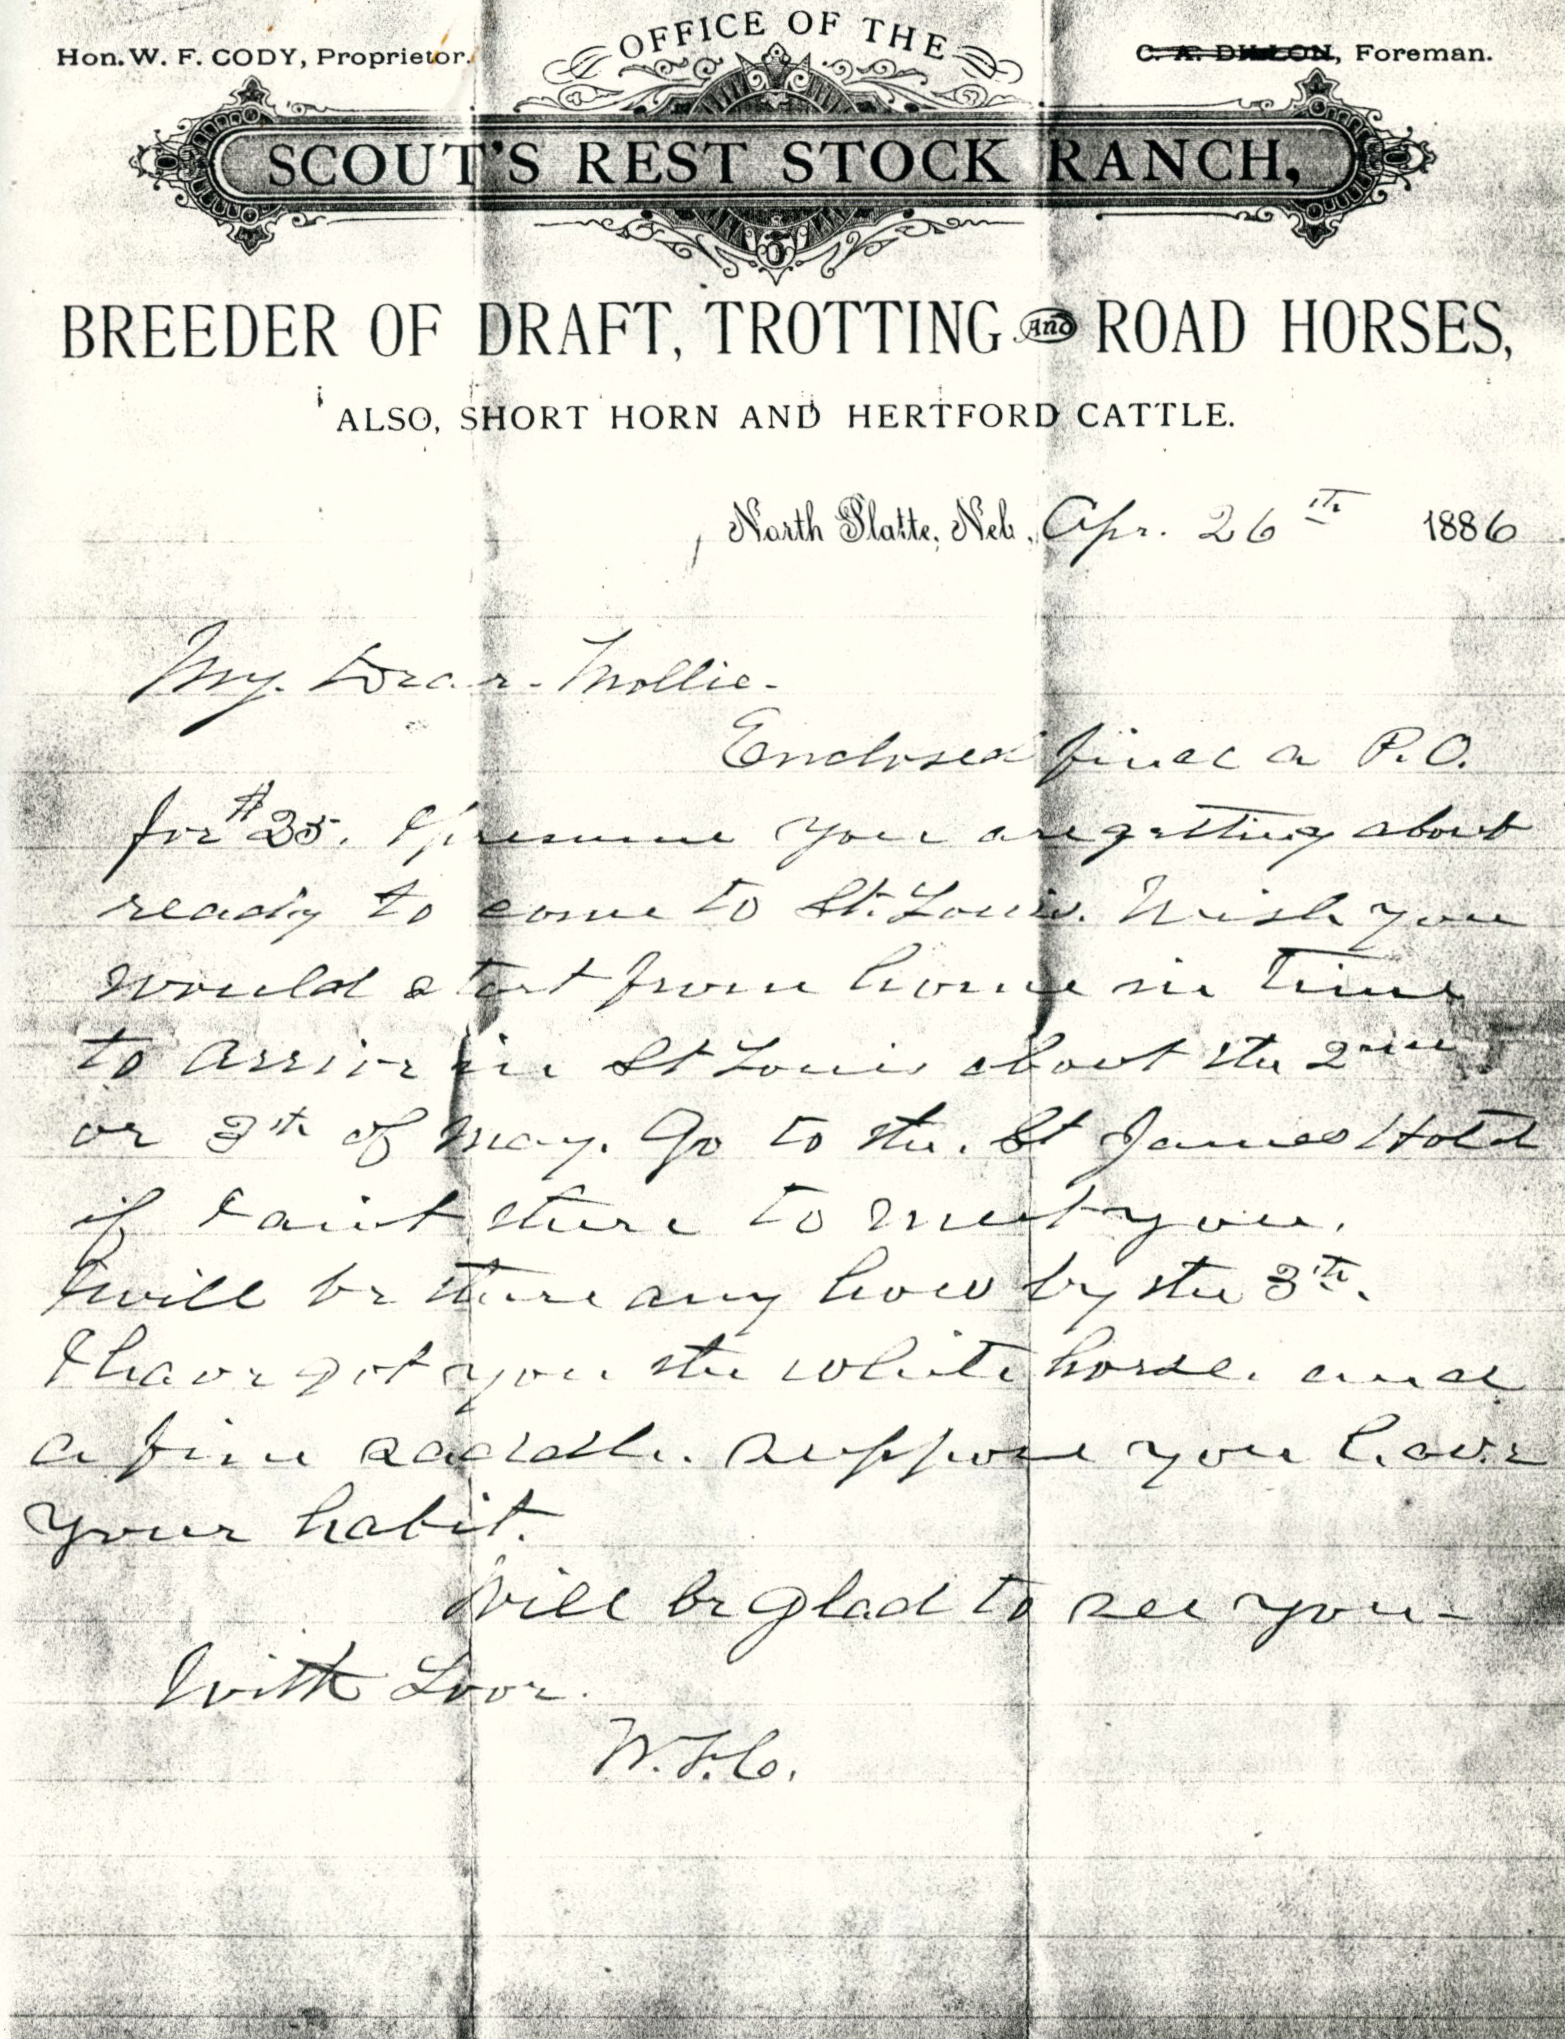 OFFICE OF THE
Hon. W. F. CODY, Proprietor.
C. A. DILLON, Foreman.
SCOUT'S REST STOCK RANCH,
BREEDER OF DRAFT, TROTTING and ROAD HORSES,
ALSO, SHORT HORN AND HERTFORD CATTLE.
North Platte, Neb., Apr. 26th 1886
My. Dear. Mollie.
Enclosed find a P.O.
for $25. I presume you are getting about
ready to come to St. Louis. Wish you
would start from home in time
to arrive in St Louis about the 2nd
or 3th of May. Go to the. St James Hotel
if I aint there to meet you.
I will be there any how by the 3th.
I have got you the white horse. and
a fine saddle. suppose you have
your habit.
Will be glad to see you-
With Love.
W.F.C.